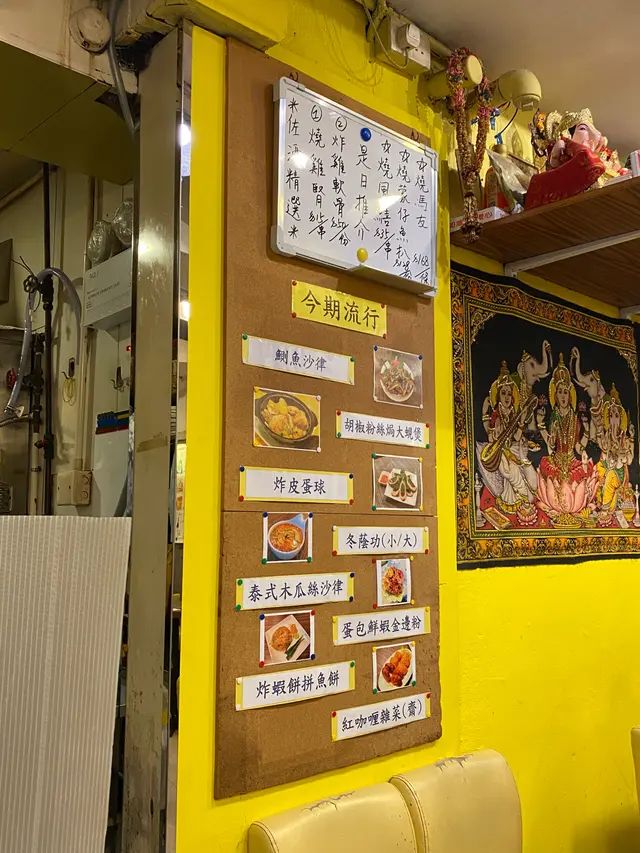 燒馬友 $168/條
燒
是日推介
② 炸雞軟骨
① 燒雞腎
*佐酒精選*
今期流行
鰂魚沙律
胡椒粉絲焗大蜆煲
炸皮蛋球
冬蔭功(小/大)
泰式木瓜絲沙律
蛋包鮮蝦金邊粉
炸蝦餅拼魚餅
紅咖喱雜菜(齋)